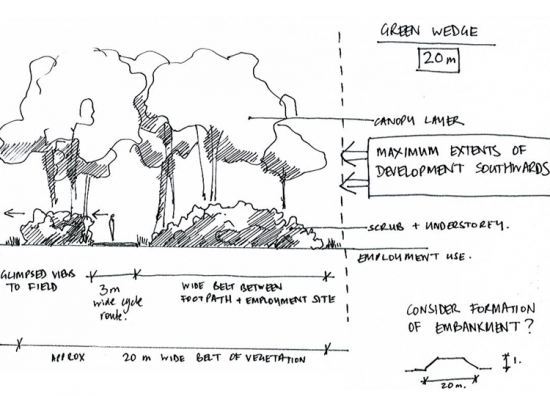 GREEN WEDGE
20m
CANOPY LAYER
MAXIMUM EXTENTS OF
DEVELOPMENT SOUTHWARDS
SCRUB + UNDERSTOREY.
EMPLOYMENT USE.
GLIMPSED VIEWS
TO FIELD
3m
wide cycle
route.
WIDE BELT BETWEEN
FOOTPATH + EMPLOYMENT SITE
APPROX 20 m WIDE BELT OF VEGETATION
CONSIDER FORMATION
OF EMBANKMENT?
1.
20m.